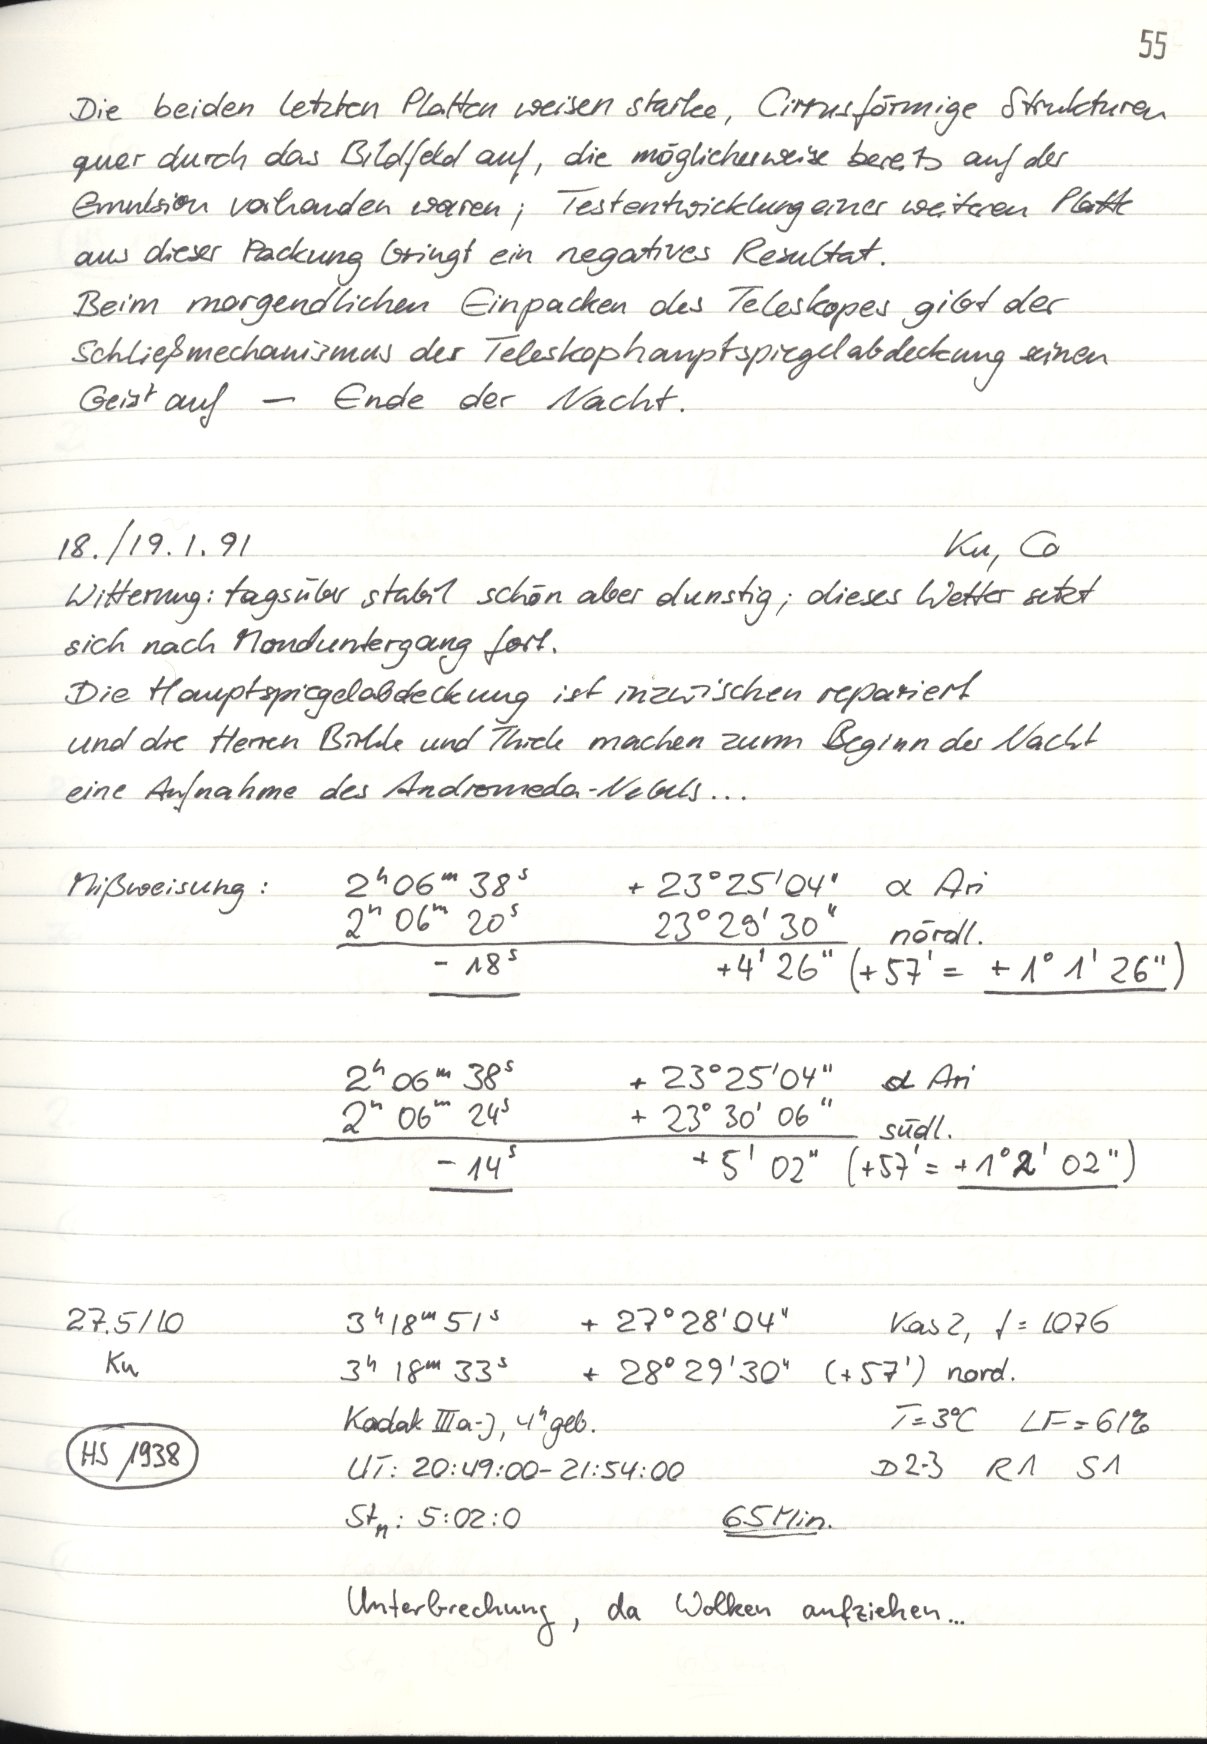 55
Die beiden letzten Platten weisen starke, Cirrusförmige Strukturen
quer durch das Bildfeld auf, die möglicherweise bereits auf der
Emulsion vorhanden waren; Testentwicklung einer weiteren Platte
aus dieser Packung bringt ein negatives Resultat.
Beim morgendlichen Einpacken des Teleskopes gibt der
Schließmechanismus der Teleskophauptspiegelabdeckung seinen
Geist auf — Ende der Nacht.
18./19.1.91 Ku, Co
Witterung: tagsüber stabil schön aber dunstig; dieses Wetter setzt
sich nach Monduntergang fort.
Die Hauptspiegelabdeckung ist inzwischen repariert
und die Herren Birkle und Thiele machen zum Beginn der Nacht
eine Aufnahme des Andromeda-Nebels...
Mißweisung: 2ʰ 06ᵐ 38ˢ + 23° 25' 04" α Ari
2ʰ 06ᵐ 20ˢ 23° 29' 30" nördl.
- 18ˢ +4' 26" (+57' = + 1° 1' 26")
2ʰ 06ᵐ 38ˢ + 23° 25' 04" α Ari
2ʰ 06ᵐ 24ˢ + 23° 30' 06" südl.
- 14ˢ + 5' 02" (+57' = +1° 2' 02")
27.5/10 3ʰ 18ᵐ 51ˢ + 27° 28' 04" Kas 2, f = 1076
Ku 3ʰ 18ᵐ 33ˢ + 28° 29' 30" (+57') nord.
Kodak IIIa-J, 4ʰ geb. T = 3°C LF = 61%
HS 1938 UT: 20:49:00-21:54:00 D 2-3 R1 S1
Stₙ: 5:02:0 65 Min.
Unterbrechung, da Wolken aufziehen...